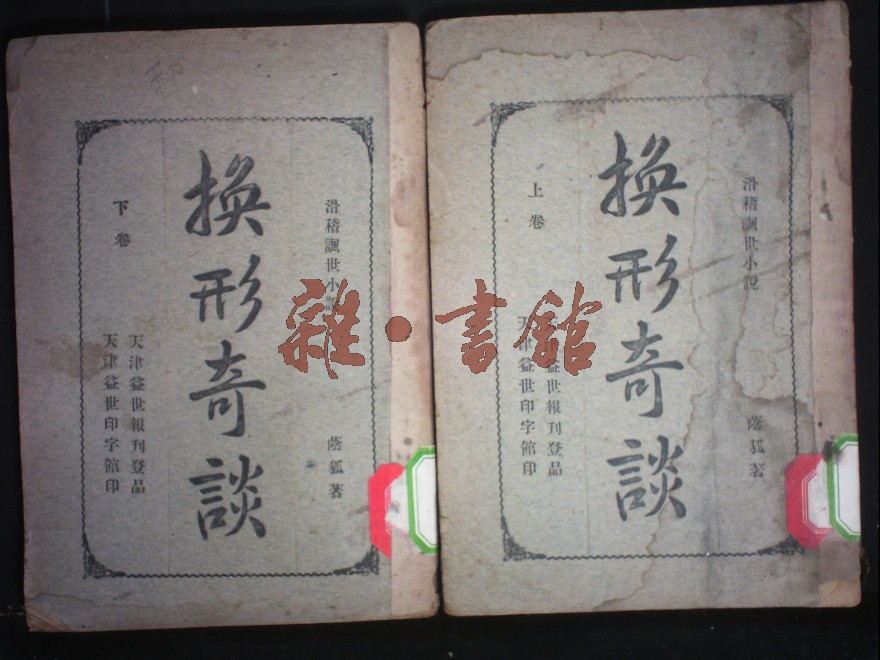 滑稽諷世小說
蔭狐著
換形奇談
上卷
天津益世報刊登品
天津益世印字館印
滑稽諷世小說
蔭狐著
換形奇談
下卷
天津益世報刊登品
天津益世印字館印
雜·書館